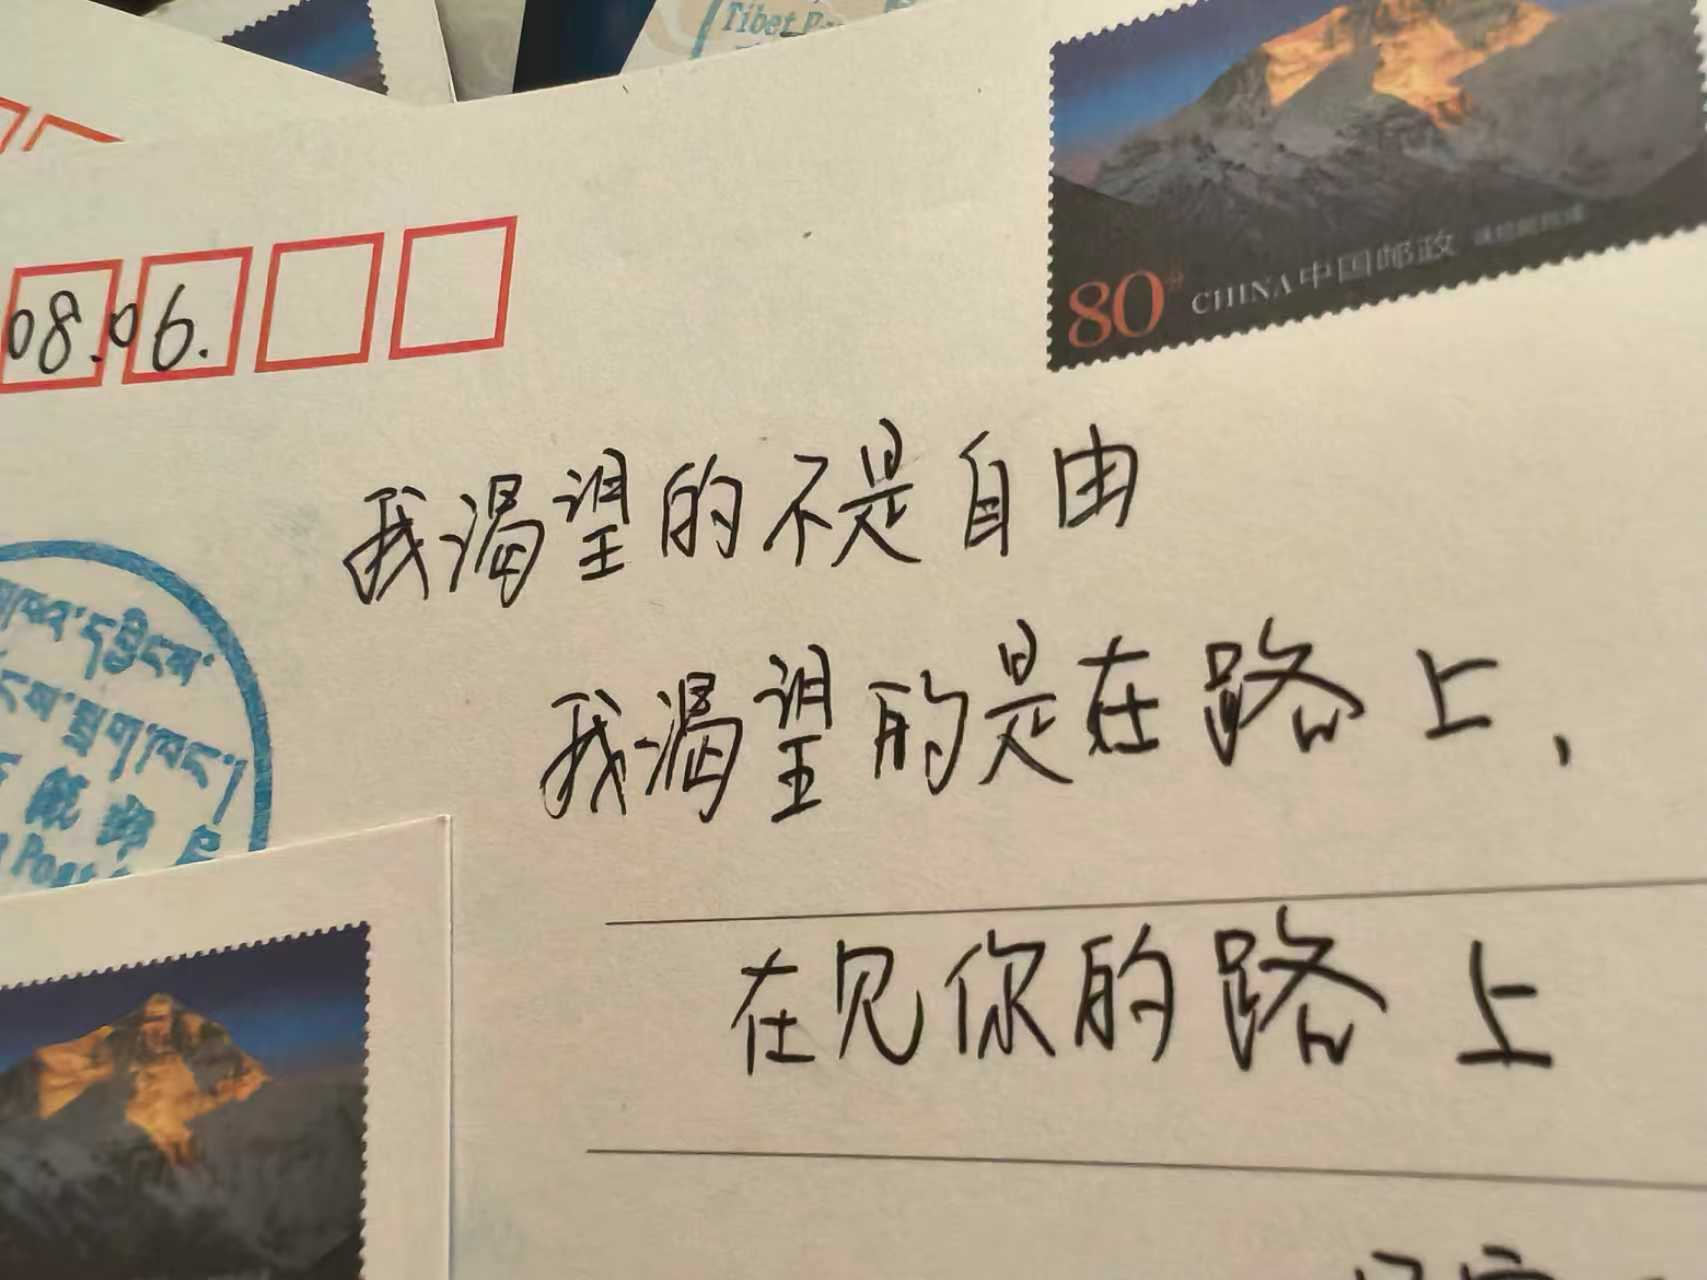 Tibet
80分 CHINA 中国邮政
08.06.
我渴望的不是自由
我渴望的是在路上,
在见你的路上
Post